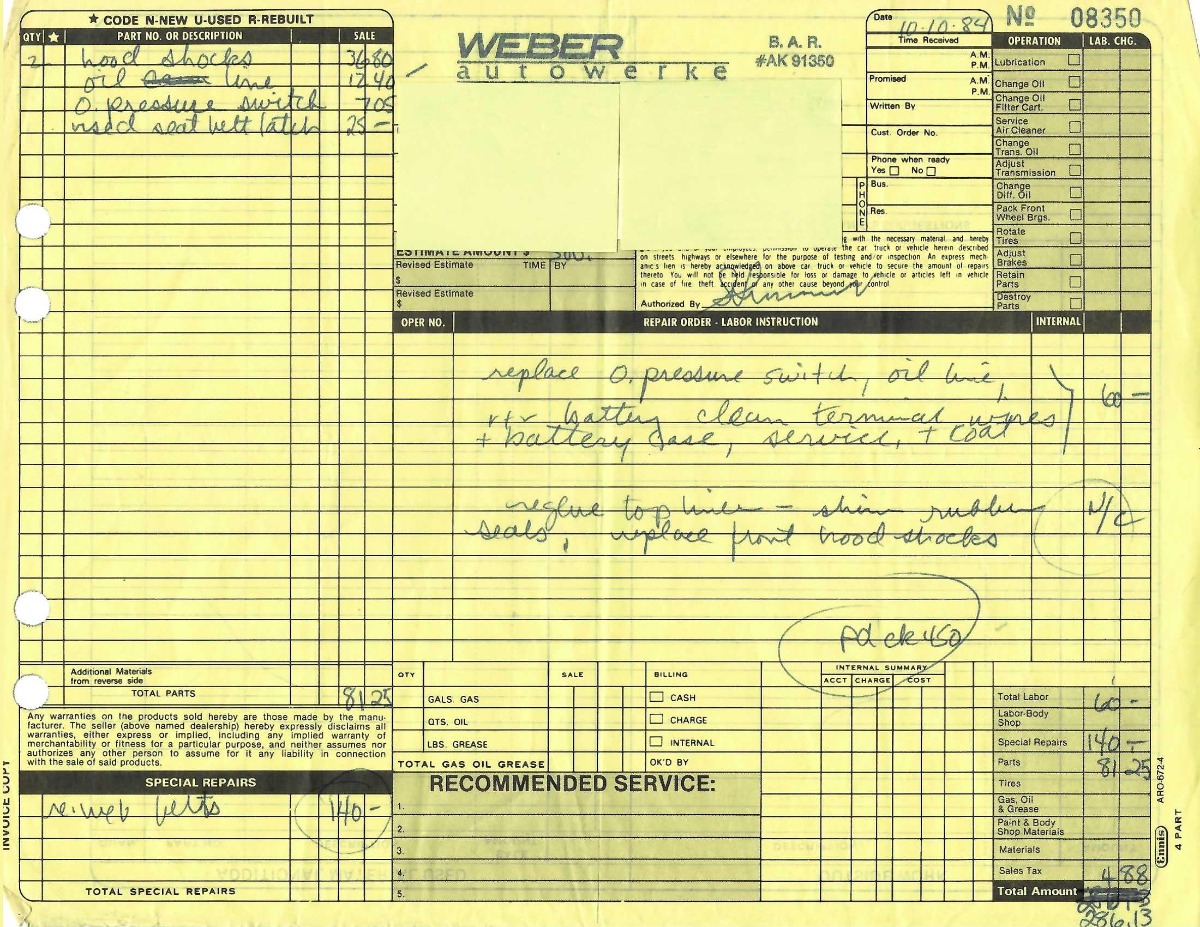 ★ CODE N-NEW U-USED R-REBUILT
QTY ★ PART NO. OR DESCRIPTION SALE
2 hood shocks 36 80
oil line 12 40
O. pressure switch 7 05
used seat belt latch 25 —
WEBER
autowerke
B. A. R.
#AK 91350
Date 10-10-84
Time Received
A.M.
P.M.
Promised A.M.
P.M.
Written By
Cust. Order No.
Phone when ready
Yes No
PHONE
Bus.
Res.
Nº 08350
OPERATION LAB. CHG.
Lubrication
Change Oil
Change Oil
Filter Cart.
Service
Air Cleaner
Change
Trans. Oil
Adjust
Transmission
Change
Diff. Oil
Pack Front
Wheel Brgs.
Rotate
Tires
Adjust
Brakes
Retain
Parts
Destroy
Parts
ESTIMATE AMOUNT $
Revised Estimate TIME BY
$
Revised Estimate
$
with the necessary material and hereby
permission to operate the car truck or vehicle herein described
on streets highways or elsewhere for the purpose of testing and/or inspection. An express mech-
anic's lien is hereby acknowledged on above car truck or vehicle to secure the amount of repairs
thereto. You will not be held responsible for loss or damage to vehicle or articles left in vehicle
in case of fire theft accident or any other cause beyond your control
Authorized By
OPER NO. REPAIR ORDER - LABOR INSTRUCTION INTERNAL
replace O. pressure switch, oil line,
r+r battery clean terminal wires 60 —
+ battery case, service, + coat
reglue top liner — shim rubber N/C
seals, replace front hood shocks
Pd ck 450
Additional Materials
from reverse side
TOTAL PARTS 81 25
Any warranties on the products sold hereby are those made by the manu-
facturer. The seller (above named dealership) hereby expressly disclaims all
warranties, either express or implied, including any implied warranty of
merchantability or fitness for a particular purpose, and neither assumes nor
authorizes any other person to assume for it any liability in connection
with the sale of said products.
SPECIAL REPAIRS
re-web belts 140 —
TOTAL SPECIAL REPAIRS
QTY SALE
GALS. GAS
QTS. OIL
LBS. GREASE
TOTAL GAS OIL GREASE
BILLING
CASH
CHARGE
INTERNAL
OK'D BY
INTERNAL SUMMARY
ACCT CHARGE COST
RECOMMENDED SERVICE:
1.
2.
3.
4.
5.
Total Labor 60 —
Labor-Body
Shop
Special Repairs 140 —
Parts 81 25
Tires
Gas, Oil
& Grease
Paint & Body
Shop Materials
Materials
Sales Tax 4 88
Total Amount
286.13
INVOICE COPY
Ennis
4 PART
ARO-672-4